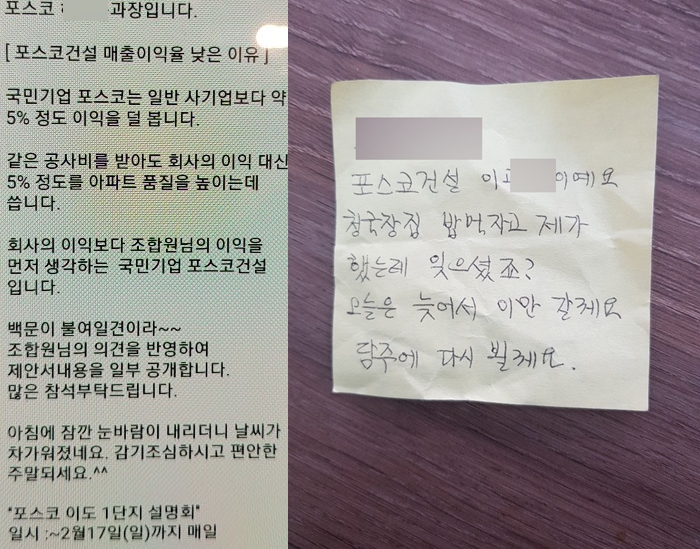 포스코 과장입니다.
[ 포스코건설 매출이익율 낮은 이유 ]
국민기업 포스코는 일반 사기업보다 약
5% 정도 이익을 덜 봅니다.
같은 공사비를 받아도 회사의 이익 대신
5% 정도를 아파트 품질을 높이는데
씁니다.
회사의 이익보다 조합원님의 이익을
먼저 생각하는 국민기업 포스코건설
입니다.
백문이 불여일견이라~~
조합원님의 의견을 반영하여
제안서내용을 일부 공개합니다.
많은 참석부탁드립니다.
아침에 잠깐 눈바람이 내리더니 날씨가
차가워졌네요. 감기조심하시고 편안한
주말되세요.^^
"포스코 이도 1단지 설명회"
일시 :~2월17일(일)까지 매일
포스코건설 이 이예요
청국장집 밥먹자고 제가
했는데 잊으셨죠?
오늘은 늦어서 이만 갈께요
담주에 다시 뵐께요.